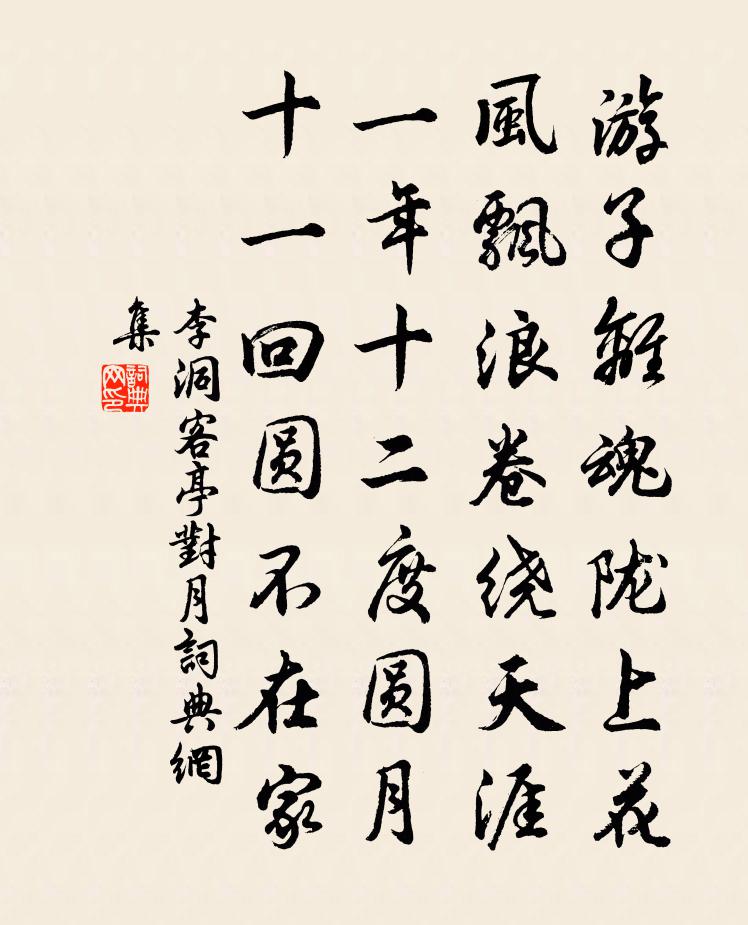 游子離魂陇上花
風飄浪卷绕天涯
一年十二度圆月
十一回圆不在家
李洞客亭對月詞典網
集
詞典
网印